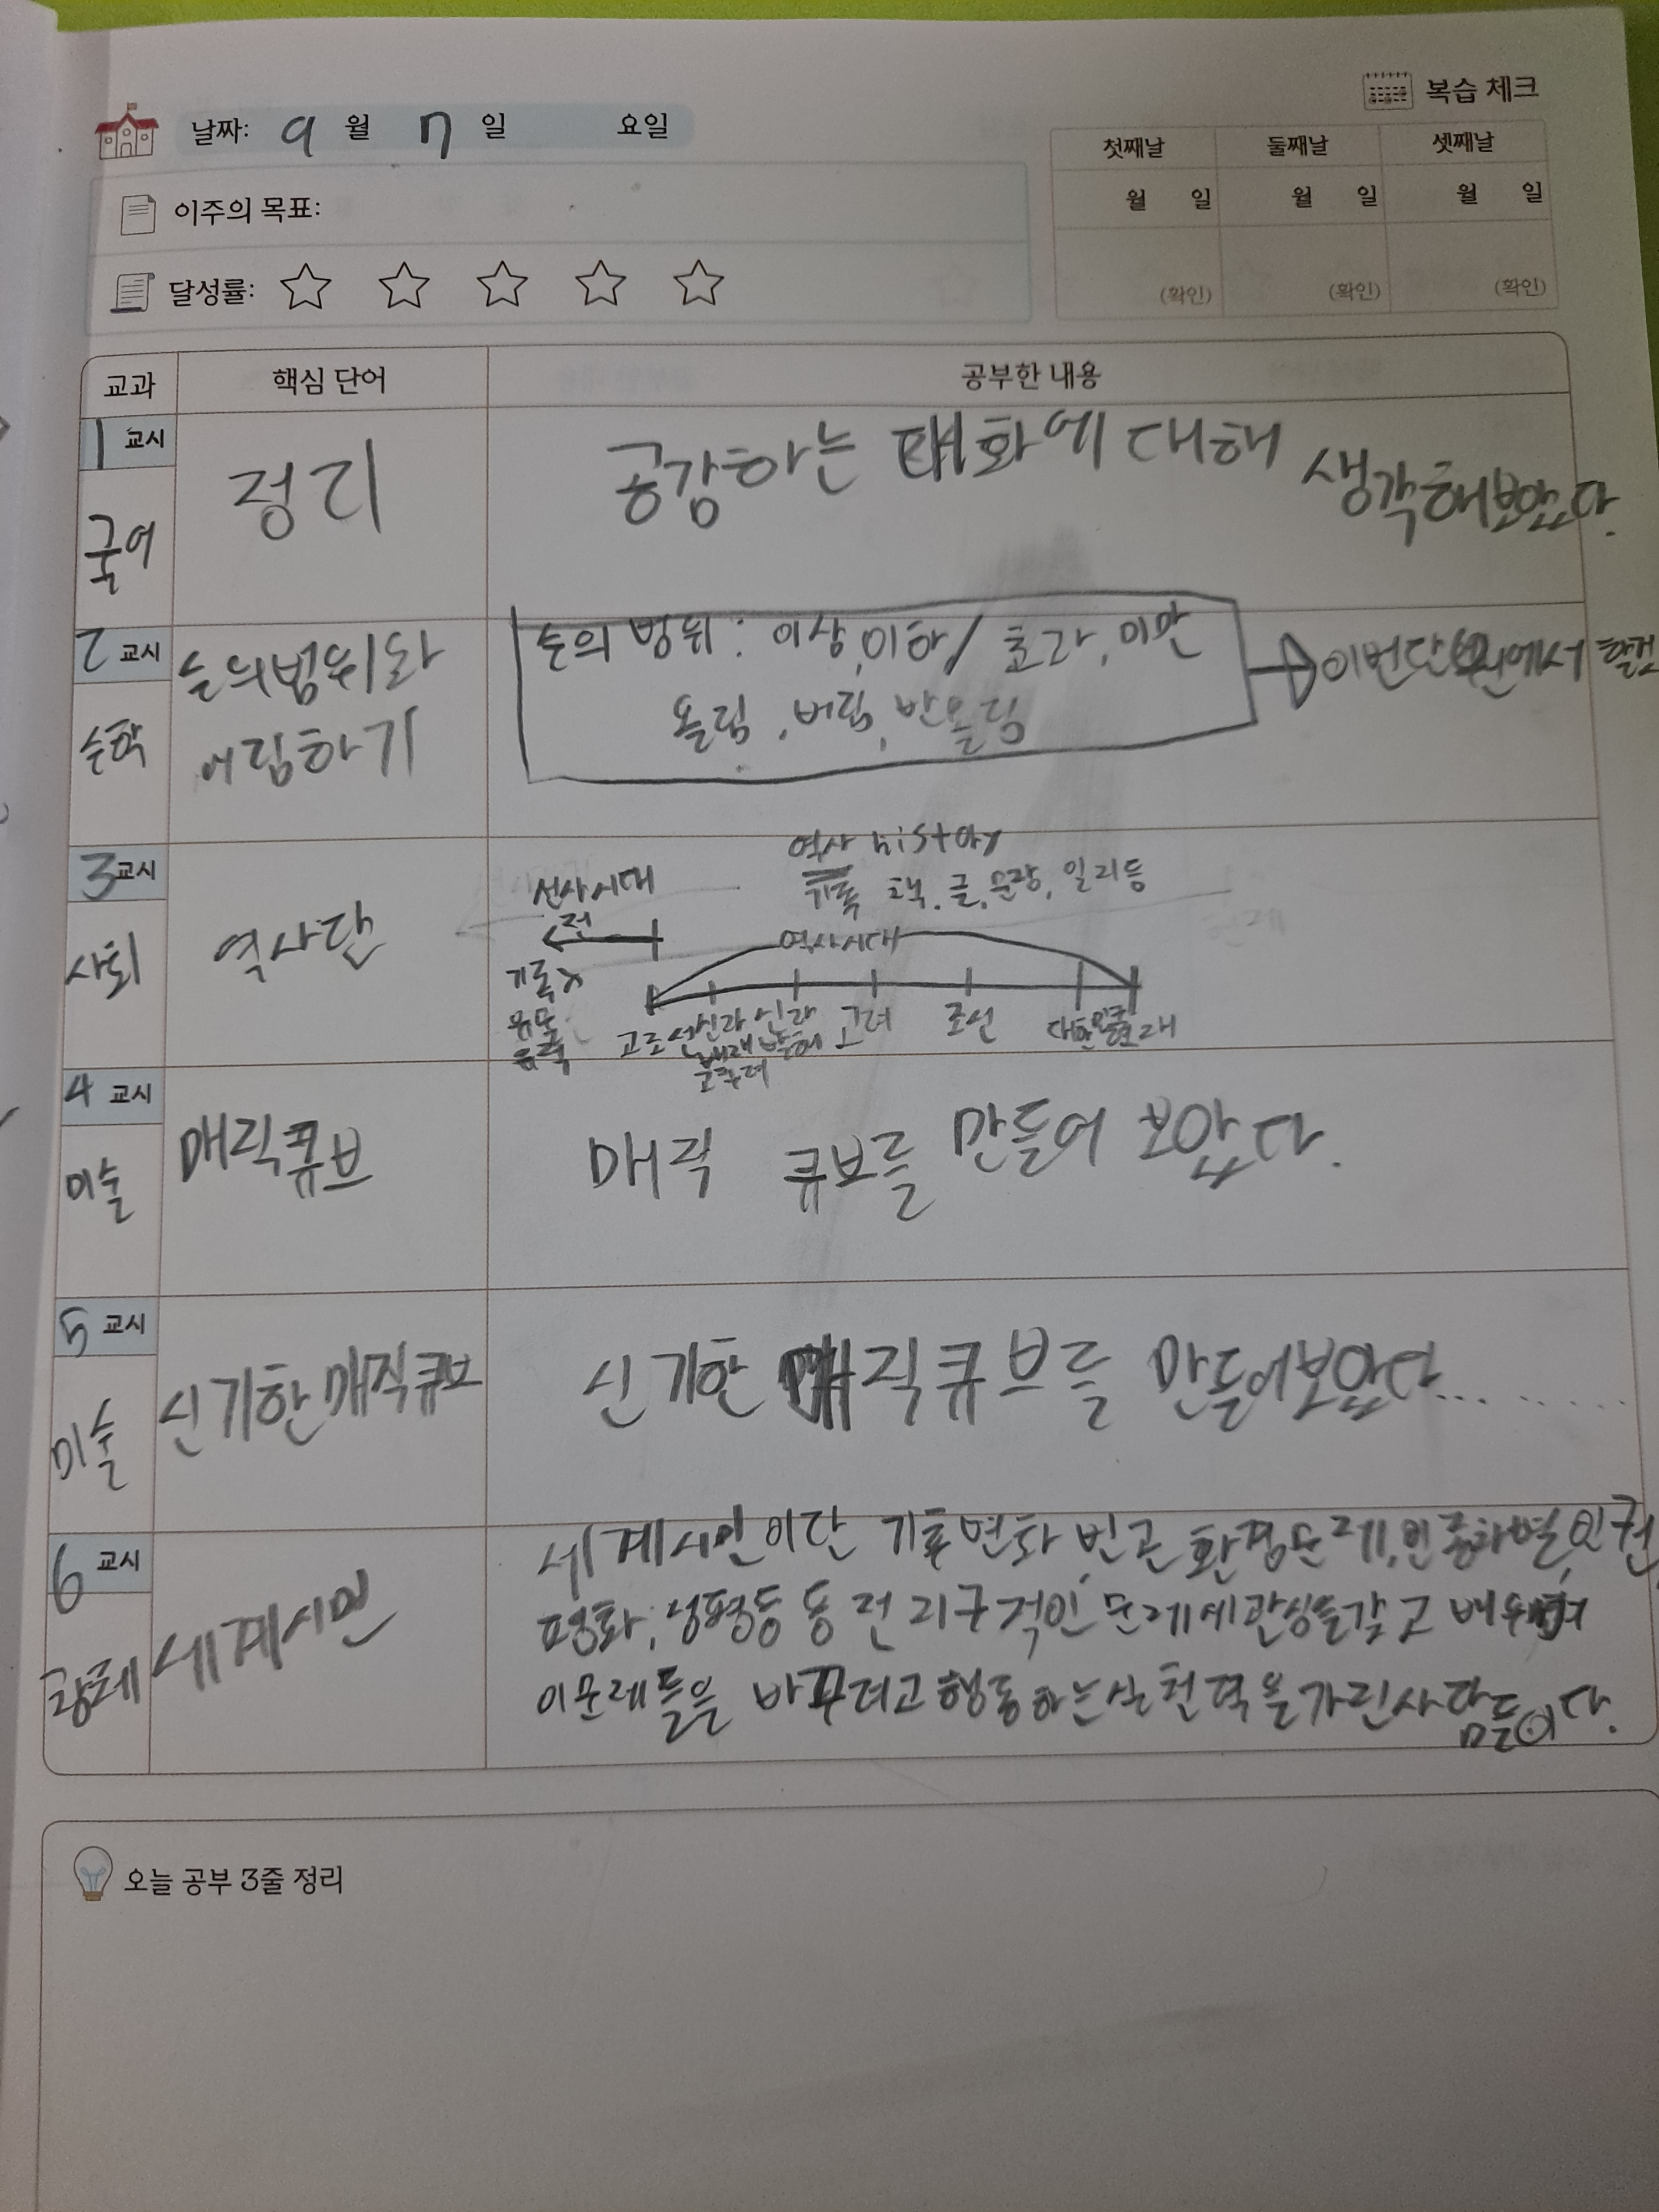 복습 체크
날짜: 9 월 7 일 요일
첫째날 둘째날 셋째날
월 일 월 일 월 일
이주의 목표:
달성률:
(확인) (확인) (확인)
교과 핵심 단어 공부한 내용
1 교시
국어
정리
공감하는 대화에 대해 생각해보았다.
2 교시
수학
수의범위와
어림하기
수의 범위 : 이상, 이하 / 초과, 미만
올림, 버림, 반올림
이번단원에서 할것
3 교시
사회
역사란
역사 history
기록 책, 글, 문장, 일기등
선사시대
전
역사시대
기록x
유물
유적
고조선 신라 신라 고려 조선 대한민국
백제 발해
고구려
4 교시
미술
매직큐브
매직 큐브를 만들어 보았다.
5 교시
미술
신기한매직큐브
신기한 매직큐브를 만들어보았다...
6 교시
창체
세계시민
세계시민이란 기후변화, 빈곤, 환경문제, 인종차별, 인권,
평화, 성평등 등 전 지구적인 문제에관심을갖고 배우며
이문제들을 바꾸려고 행동하는실천력을가진사람들이다.
오늘 공부 3줄 정리